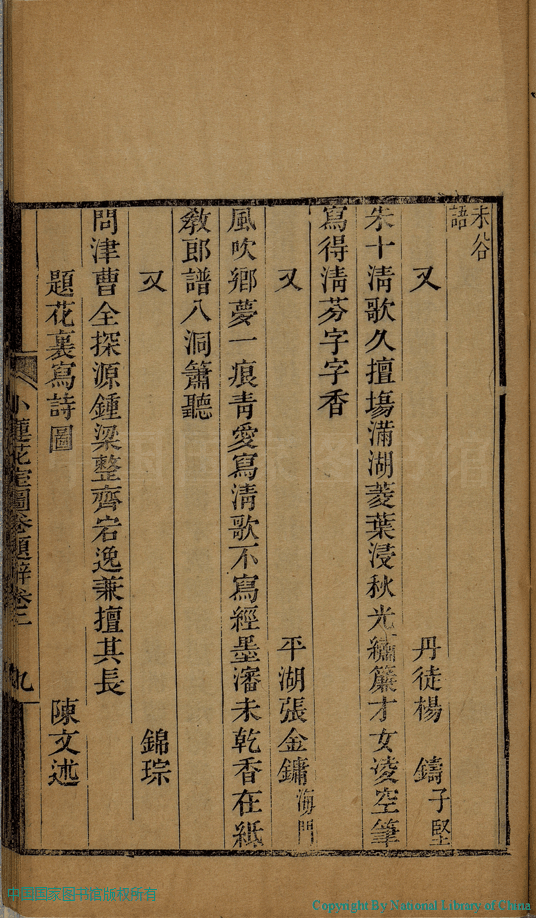 未谷
語
又 丹徒楊 鑄子堅
朱十清歌久擅塲滿湖菱葉浸秋光繡簾才女淩空筆
寫得清芬字字香
又 平湖張金鏞海門
風吹鄉夢一痕青愛寫清歌不寫經墨瀋未乾香在紙
教郎譜入洞簫聽
又 錦琮
問津曹全探源鍾梁整齊宕逸兼擅其長
題花裏寫詩圖 陳文述
小蓮花室圖卷題辭卷二 九
中国国家图书馆
中国国家图书馆版权所有
Copyright By National Library of China